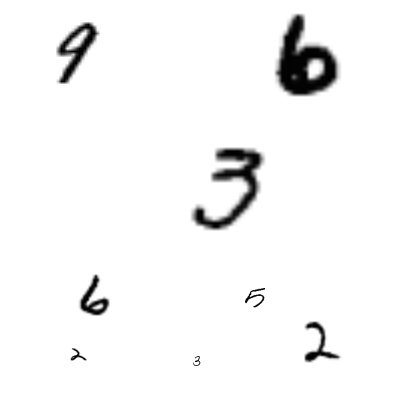 9 6
3
6 5
2 3 2